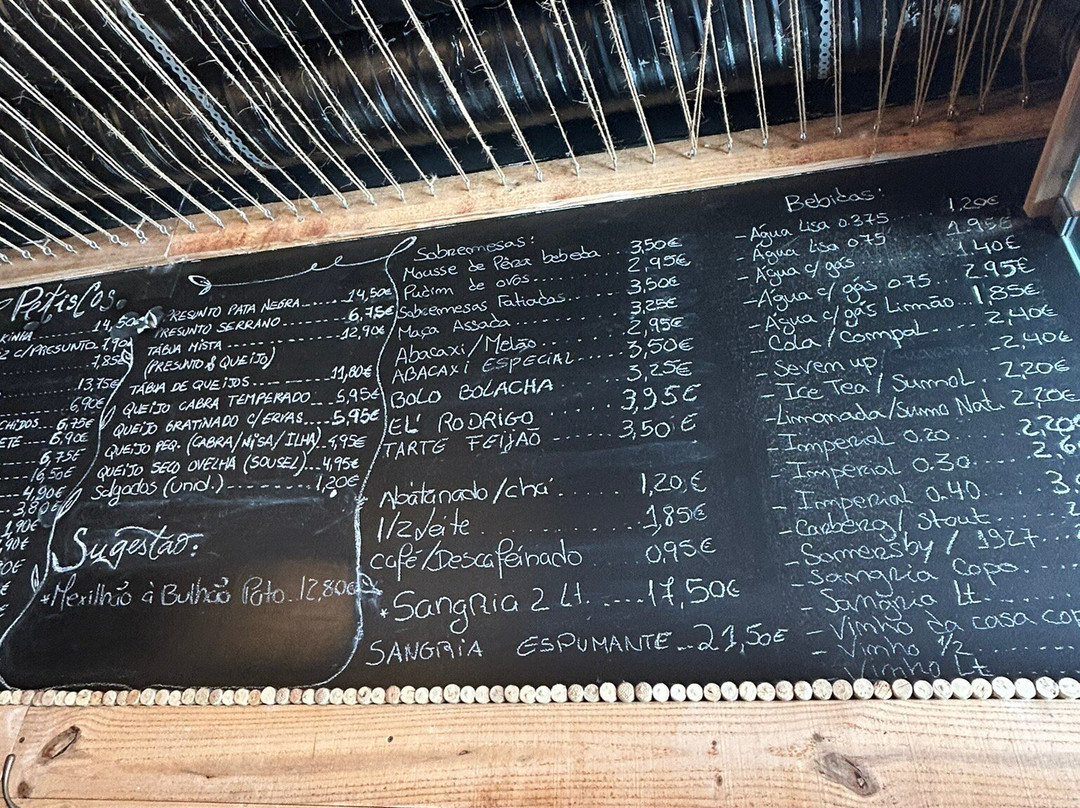 Petiscos.
14,50€
C/PRESUNTO 7,90
7,85€
13,75€
6,90€
6,75€
6,90€
6,75€
16,50€
4,90€
3,80€
1,90€
PRESUNTO PATA NEGRA......14,50€
PRESUNTO SERRANO......6,75€
TÁBUA MISTA......12,90€
(PRESUNTO & QUEIJO)
TÁBUA DE QUEIJOS......11,80€
QUEIJO CABRA TEMPERADO...5,95€
QUEIJO GRATINADO C/ERVAS...5,95€
QUEIJO PEQ. (CABRA/NISA/ILHA)..4,95€
QUEIJO SECO OVELHA (SOUSEL)...4,95€
Salgados (unid.)......1,20€
Sugestão:
*Mexilhão à Bulhão Pato..12,80€
Sobremesas:
Mousse de Pêra bebeda...3,50€
Pudim de ovos......2,95€
Sobremesas Fatiadas......3,50€
Maça Assada......3,25€
Abacaxi/Melão......2,95€
ABACAXI ESPECIAL......3,50€
BOLO BOLACHA......3,25€
EL' RODRIGO......3,95€
TARTE FEIJÃO......3,50€
Abatanado/chá......1,20€
1/2 Leite......1,85€
café/Descafeinado 0,95€
*Sangria 2 Lt.....17,50€
SANGRIA ESPUMANTE...21,50€
Bebidas:
-Agua Lisa 0.375......1,20€
-Agua Lisa 075......1.95€
-Agua c/gás......1,40€
-Agua c/ gás 0.75......2,95€
-Agua c/gás Limão...1,85€
-Cola / Compal......2,40€
-Seven up/......2,40€
-Ice Tea / Sumol......2,20€
-Limonada/Sumo Nat.2,20€
-Imperial 0.20......2,20
-Imperial 0.30......
-Imperial 0.40......
-Carlberg/ Stout......
-Samersby / 1927......
-Sangria Copo......
-Sangria Lt......
-Vinho da casa
-Vinho 1/2......
Vinho Lt......